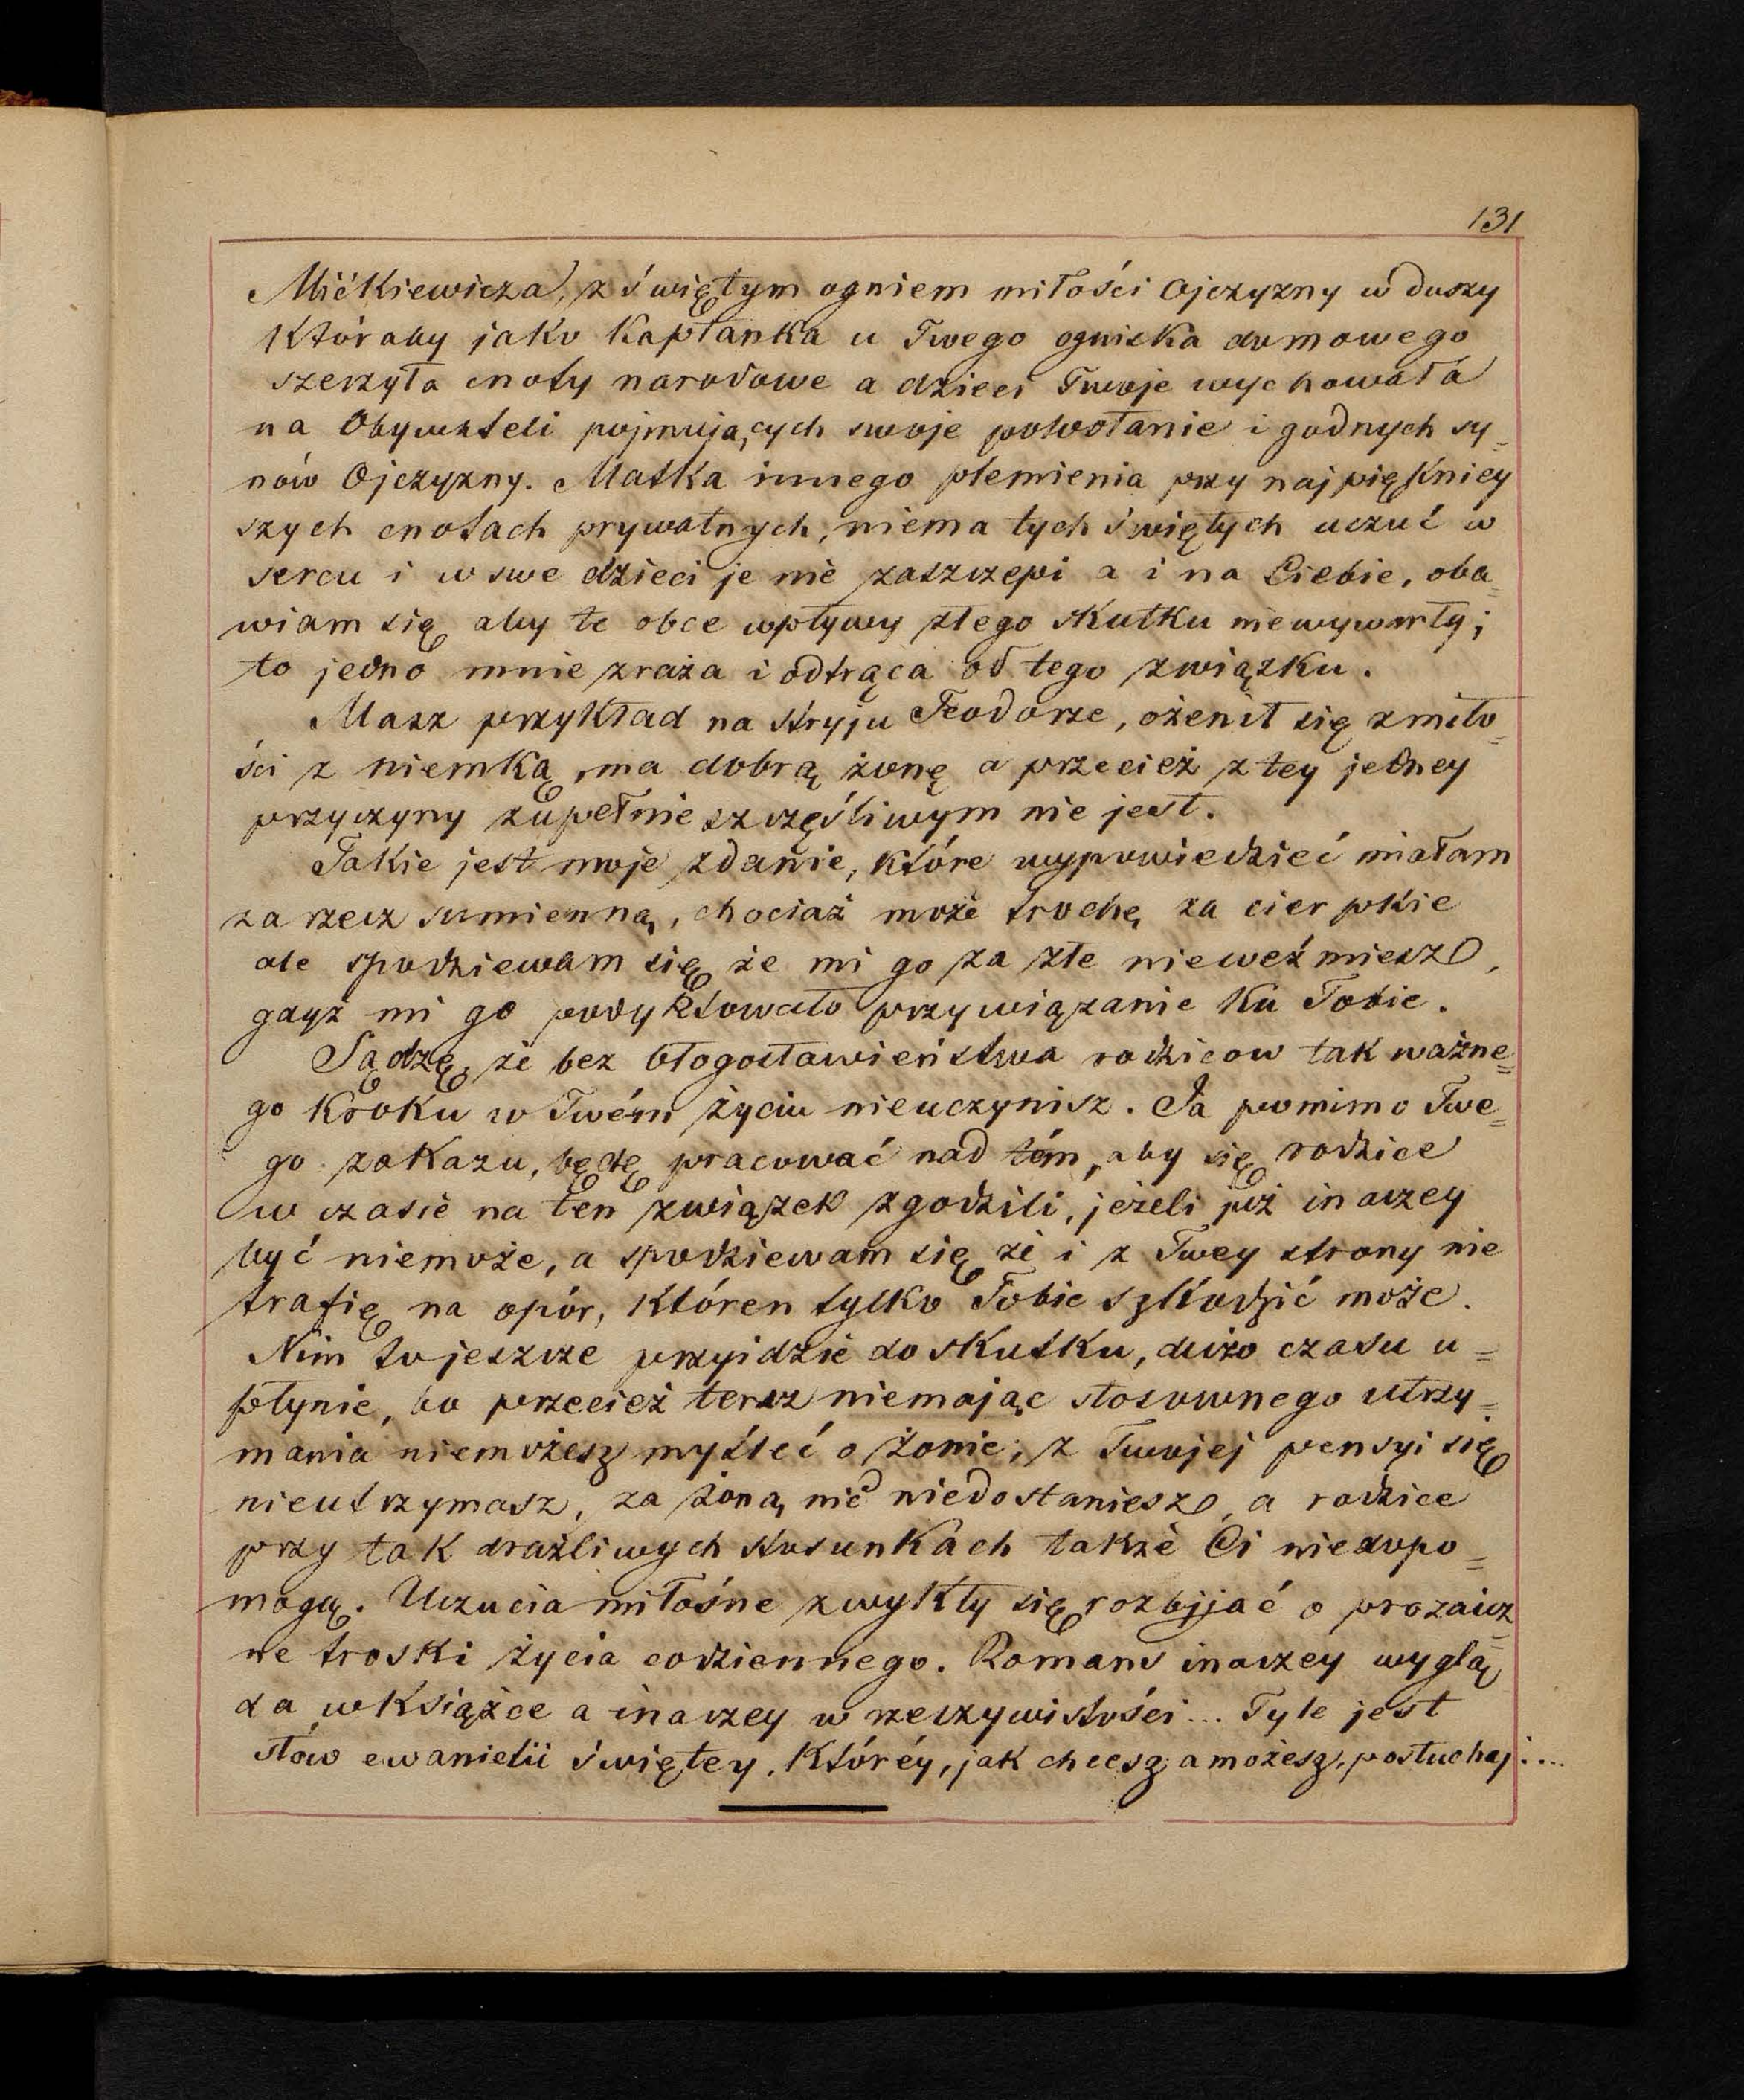 131
Mićkiewicza, z świętym ogniem miłości Ojczyzny w duszy
któraby jako Kapłanka u Twego ogniska domowego
szerzyła cnoty narodowe a dzieci Twoje wychowała
na Obywateli pojmujących swoje powołanie i godnych sy=
nów Ojczyzny. Matka innego plemienia przy najpiękniey
szych cnotach prywatnych, niema tych świętych uczuć w
sercu i w swe dzieci je nie zaszczepi a i na Ciebie, oba=
wiam się aby te obce wpływy złego skutku niewywarły;
to jedno mnie zraża i odtrąca od tego związku.
Masz przykład na Stryju Teodorze, ożenił się z miło=
ści z niemką, ma dobrą żonę a przecież z tey jedney
przyczyny zupełnie szczęśliwym nie jest.
Takie jest moje zdanie, które wypowiedzieć miałam
za rzecz sumienną, chociaż może trochę za cierpkie
ale spodziewam się że mi go za złe nieweźmiesz,
gdyż mi go podyktowało przywiązanie ku Tobie.
Sądzę, że bez błogosławieństwa rodzicow tak ważne=
go kroku w Twém życiu nieuczynisz. Ja pomimo Twe=
go zakazu, będę pracować nad tém, aby się rodzice
w czasie na ten związek zgodzili, jeżeli już inaczey
być niemoże, a spodziewam się że i z Twey strony nie
trafię na opór, któren tylko Tobie szkodzić może.
Nim to jeszcze przyidzie do skutku, dużo czasu u=
płynie, bo przecież teraz niemając stosownego utrzy=
mania niemożesz myśleć o żonie; z Twojej pensyi się
nieutrzymasz, za żoną nic niedostaniesz, a rodzice
przy tak drażliwych stosunkach także Ci niedopo=
mogą. Uczucia miłośne zwykły się rozbijać o prozaicz=
ne troski życia codziennego. Romans inaczey wyglą=
da w książce a inaczey w rzeczywistości... Tyle jest
słów ewanielii świętey, któréy, jak chcesz a możesz, posłuchaj....